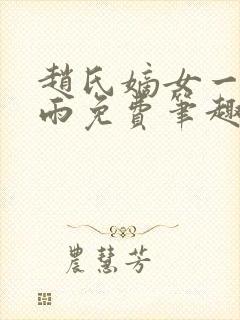 趙氏嫡女一
雨免費筆趣
農慧芳